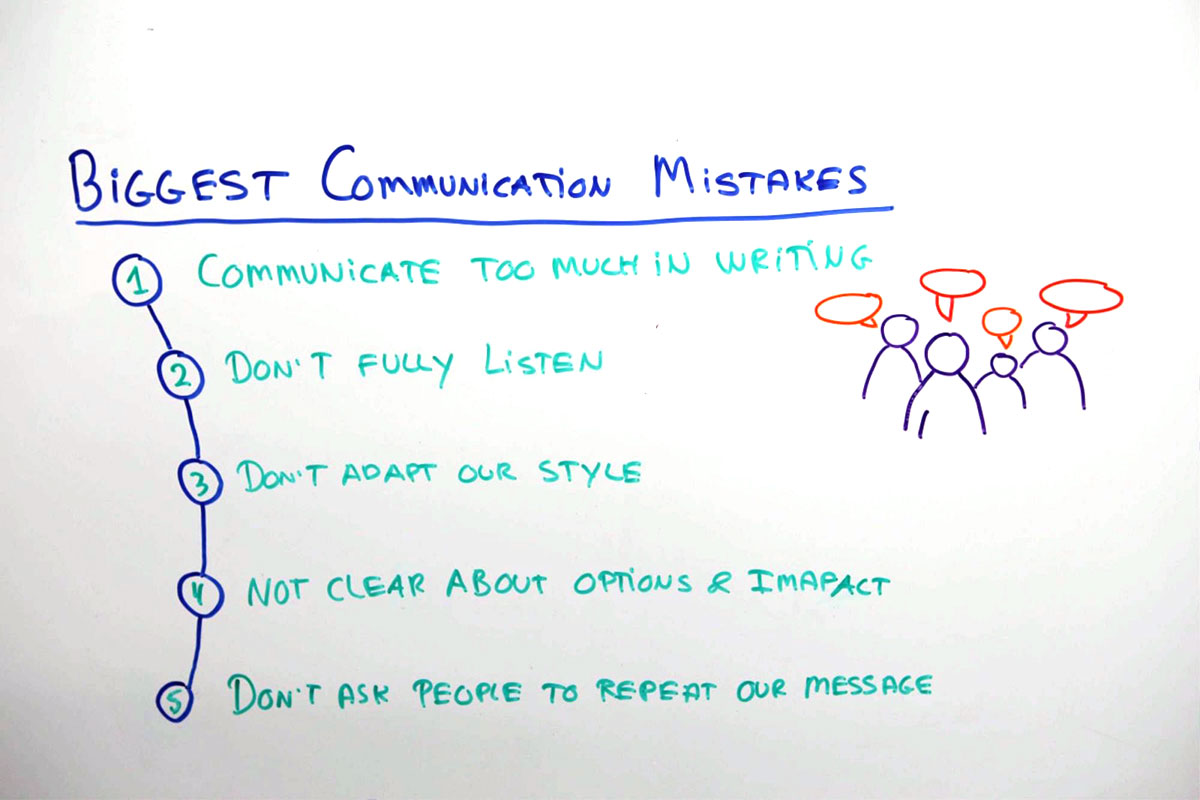 BIGGEST COMMUNICATION MISTAKES
1 COMMUNICATE TOO MUCH IN WRITING
2 DON'T FULLY LISTEN
3 DON'T ADAPT OUR STYLE
4 NOT CLEAR ABOUT OPTIONS & IMAPACT
5 DON'T ASK PEOPLE TO REPEAT OUR MESSAGE